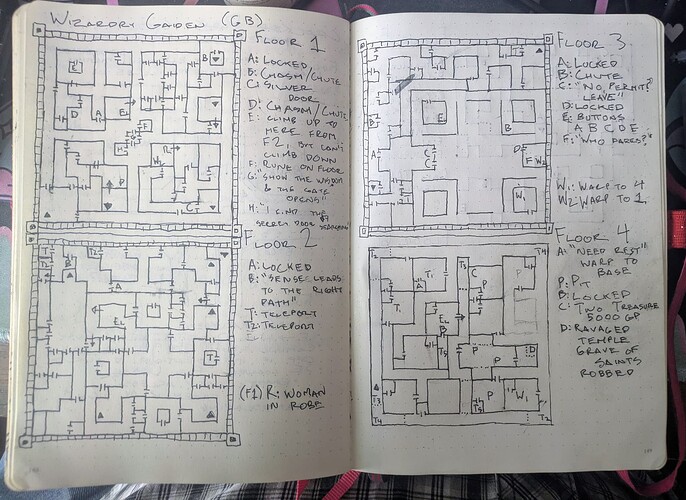 WIZARDRY GAIDEN (GB)
FLOOR 1
A: LOCKED
B: CHASM/CHUTE
C: SILVER
DOOR
D: CHASM/CHUTE
E: CLIMB UP TO
HERE FROM
F2, BUT CAN'T
CLIMB DOWN
F: RUNE ON FLOOR
G: "SHOW THE WISDOM
& THE GATE
OPENS"
H: "I FIND THE
SECRET DOOR
FLOOR 2
A: LOCKED
B: "SENSE LEADS
TO THE RIGHT
PATH"
T: TELEPORT
T2: TELEPORT
(F1) R: WOMAN
IN ROBE
FLOOR 3
A: LOCKED
B: CHUTE
C: "NO PERMIT?
LEAVE"
D: LOCKED
E: BUTTONS
A B C D E
F: "WHO DARES?"
W1: WARP TO 4
W2: WARP TO 1
FLOOR 4
A: "NEED REST"
WARP TO
BASE
P: PIT
B: LOCKED
C: TWO TREASURE
5000 GP
D: RAVAGED
TEMPLE
GRAVE OF
SAINTS
ROBBED